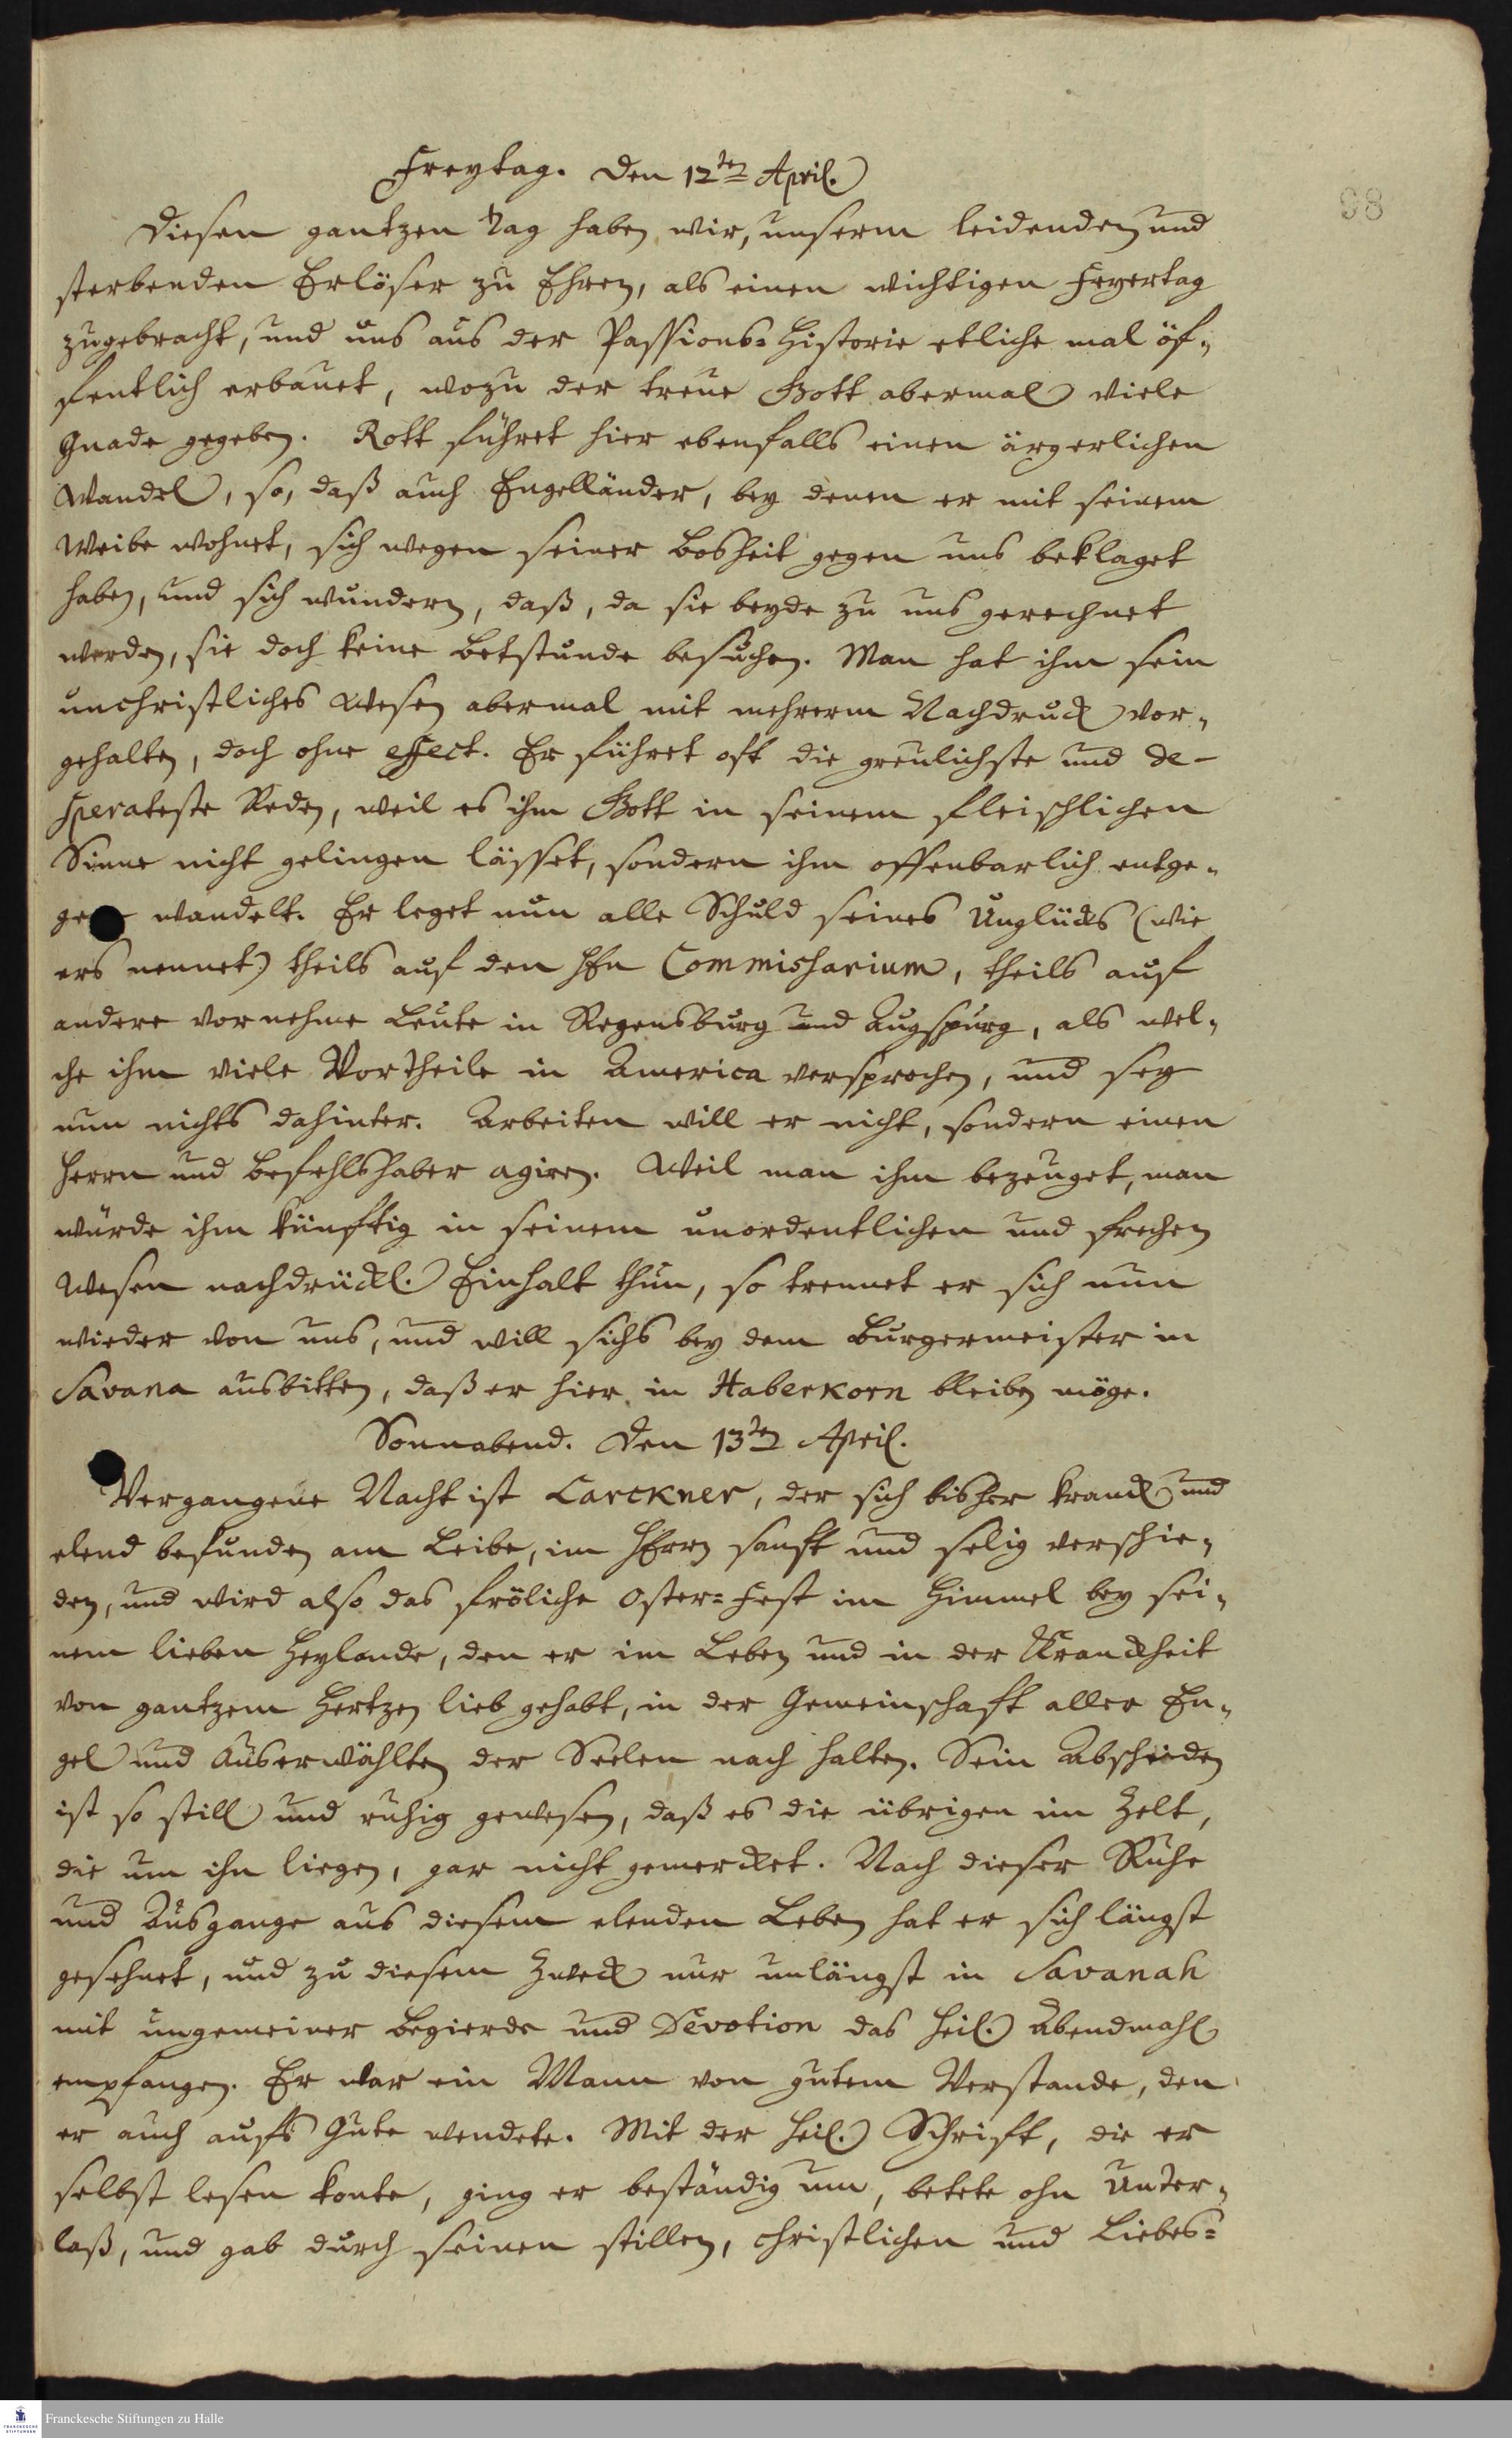 98
Freytag. den 12ten April.
Diesen gantzen Tag haben wir, unserm leidenden und
sterbenden Erlöser zu Ehren, als einen wichtigen Feyertag
zugebracht, und uns aus der Passions-Historie etliche mal öf-
fentlich erbauet, wozu der treue Gott abermal viele
Gnade gegeben. Rott führet hier ebenfalls einen ärgerlichen
Wandel, so, daß auch Engelländer, bey denen er mit seinem
Weibe wohnet, sich wegen seiner Bosheit gegen uns beklaget
haben, und sich wundern, daß, da sie beyde zu uns gerechnet
werden, sie doch keine Betstunde besuchen. Man hat ihm sein
unchristliches Wesen abermal mit mehrerm Nachdruck vor-
gehalten, doch ohne effect. Er führet oft die greulichste und de-
sperateste Reden, weil es ihm Gott in seinem fleischlichen
Sinne nicht gelingen lässet, sondern ihm offenbarlich entge-
gen wandelt. Er leget nun alle Schuld seines Unglücks (wie
ers nennet) theils auf den Hln Commissarium, theils auf
andere vornehme Leute in Regensburg und Augspurg, als wel-
che ihm viele Vortheile in America versprochen, und sey
nun nichts dahinter. Arbeiten will er nicht, sondern einen
Herrn und Befehlshaber agiren. Weil man ihm bezeuget, man
würde ihm künftig in seinem unordentlichen und frechen
Wesen nachdrückl. Einhalt thun, so trennet er sich nun
wieder von uns, und will sichs bey dem Burgermeister in
Savana ausbitten, daß er hier in Haberkorn bleiben möge.
Sonnabend. den 13ten April.
Vergangene Nacht ist Lackner, der sich bisher kranck und
elend befunden am Leibe, im HErrn sanft und selig verschie-
den, und wird also das fröliche Oster-Fest im Himmel bey sei-
nem lieben Heylande, den er im Leben und in der Kranckheit
von gantzem Hertzen lieb gehabt, in der Gemeinschaft aller En-
gel und Auserwählten der Seelen nach halten. Sein Abscheiden
ist so still und ruhig gewesen, daß es die übrigen im Zelt,
die um ihn liegen, gar nicht gemercket. Nach dieser Ruhe
und Ausgange aus diesem elenden Leben hat er sich längst
gesehnet, und zu diesem Zweck nur unlängst in Savanah
mit ungemeiner Begierde und Devotion das heil. Abendmahl
empfangen. Er war ein Mann von gutem Verstande, den
er auch aufs Gute wendete. Mit der heil. Schrift, die er
selbst lesen konte, ging er beständig um, betete ohn Unter-
laß, und gab durch seinen stillen, christlichen und Liebes-
Franckesche Stiftungen zu Halle